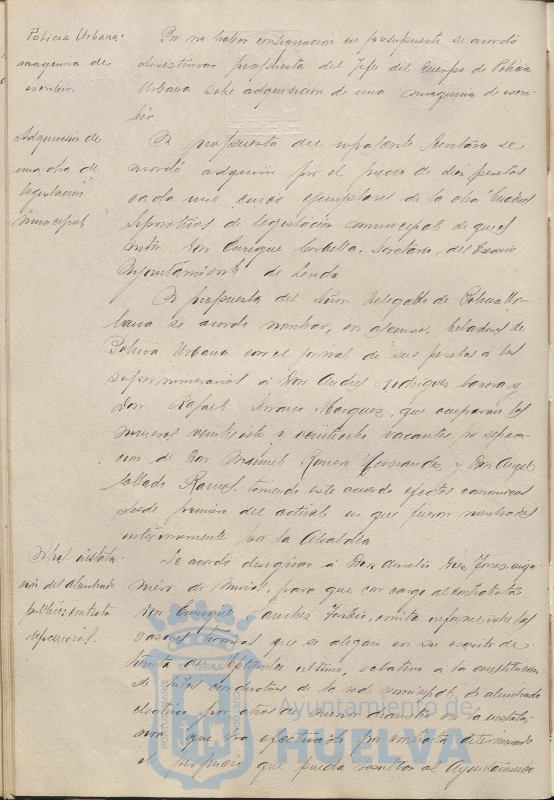 Policia Urbana:
maquina de
escribir.
Por no haber consignacion en presupuesto se acordó
desestimar propuesta del Jefe del Cuerpo de Policia
Urbana sobre adquisicion de una maquina de escri-
bir
Adquisicion de
una obra de
legislacion
municipal
A propuesta del infrascrito Secretario se
acordó adquirir por el precio de diez pesetas
cada uno cinco ejemplares de la obra Cuadros
de legislacion municipal de que es
autor Don Enrique Secretario del Excmo
Ayuntamiento de
A propuesta del Señor Delegado de Policia Ur-
bana se acordó nombrar, en ascenso, Celadores de
Policia Urbana con el jornal de seis pesetas a los
supernumerarios á Don Andres Rodriguez y
Don Rafael Marquez, que ocuparan los
numeros veintisiete y veintiocho vacantes por separa-
cion de Don Manuel Romero Hernandez y Don Angel
Collado teniendo este acuerdo efectos
desde primero del actual en que fueron nombrados
interinamente por la Alcaldia
instala-
cion del alumbrado
publico: contrata
Se acordó designar á Don Aurelio Torres, inge-
niero de minas, para que con cargo al contratista
Don Enrique Sanchez emita informe sobre las
razones que se alegan en su escrito de
treinta de Septiembre ultimo, relativo a la sustitucion
de hilos conductores de la red municipal de alumbrado
electrico por otros de menor diametro en la instala-
cion que ha efectuado por contrata determinando
el perjuicio que pueda resultar al Ayuntamiento
Ayuntamiento de
HUELVA